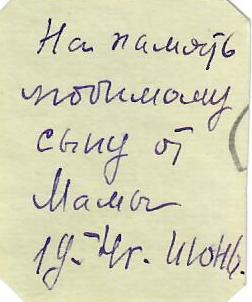 На память
любимому
сыну от
Мамы
июнь.